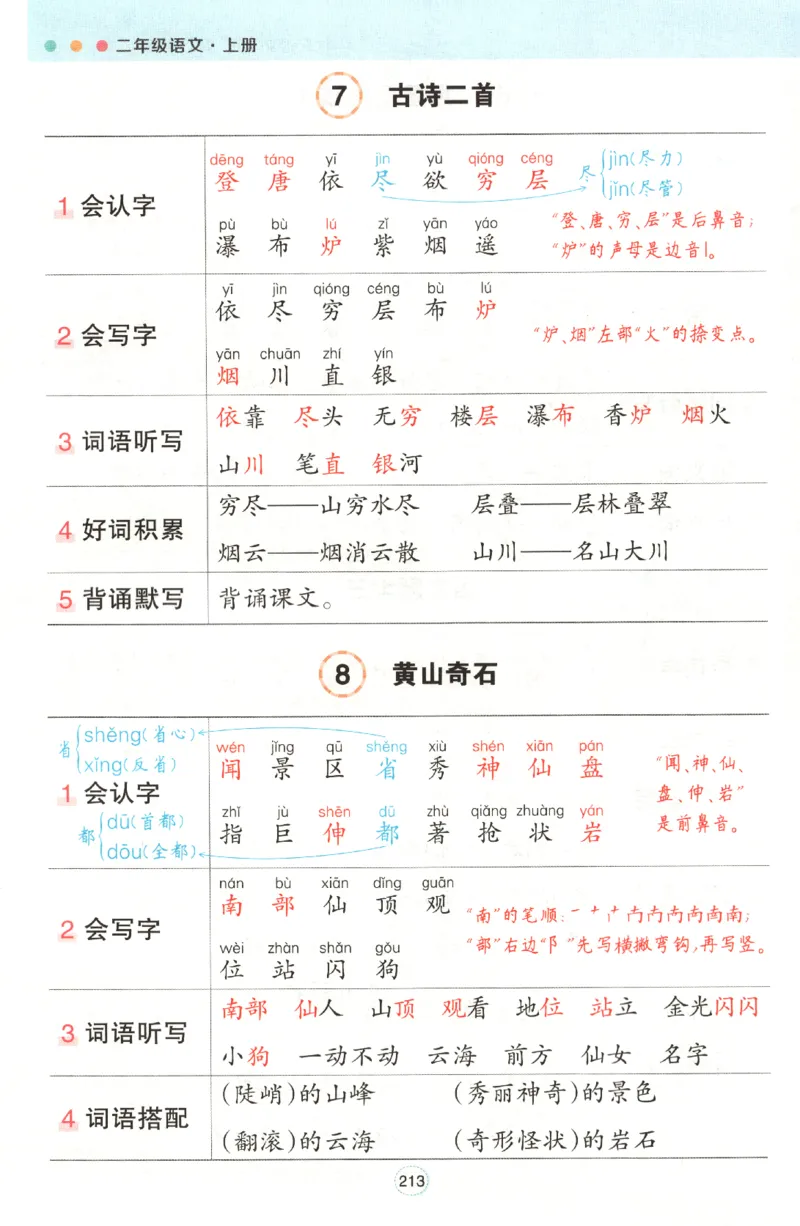 二年级语文·上册
7 古诗二首
1 会认字
dēng táng yī jìn yù qióng céng
登 唐 依 尽 欲 穷 层
尽 jìn(尽力)
jǐn(尽管)
pù bù lú zǐ yān yáo
瀑 布 炉 紫 烟 遥
“登、唐、穷、层”是后鼻音;
“炉”的声母是边音l。
2 会写字
yī jìn qióng céng bù lú
依 尽 穷 层 布 炉
yān chuān zhí yín
烟 川 直 银
“炉、烟”左部“火”的捺变点。
3 词语听写
依靠 尽头 无穷 楼层 瀑布 香炉 烟火
山川 笔直 银河
4 好词积累
穷尽——山穷水尽 层叠——层林叠翠
烟云——烟消云散 山川——名山大川
5 背诵默写
背诵课文。
8 黄山奇石
省 shěng(省心)
xǐng(反省)
1 会认字
都 dū(首都)
dōu(全都)
wén jǐng qū shěng xiù shén xiān pán
闻 景 区 省 秀 神 仙 盘
zhǐ jù shēn dū zhù qiǎng zhuàng yán
指 巨 伸 都 著 抢 状 岩
“闻、神、仙、
盘、伸、岩”
是前鼻音。
2 会写字
nán bù xiān dǐng guān
南 部 仙 顶 观
wèi zhàn shǎn gǒu
位 站 闪 狗
“部”右边“阝”先写横撇弯钩,再写竖。
3 词语听写
南部 仙人 山顶 观看 地位 站立 金光闪闪
小狗 一动不动 云海 前方 仙女 名字
4 词语搭配
(陡峭)的山峰 (秀丽神奇)的景色
(翻滚)的云海 (奇形怪状)的岩石
213